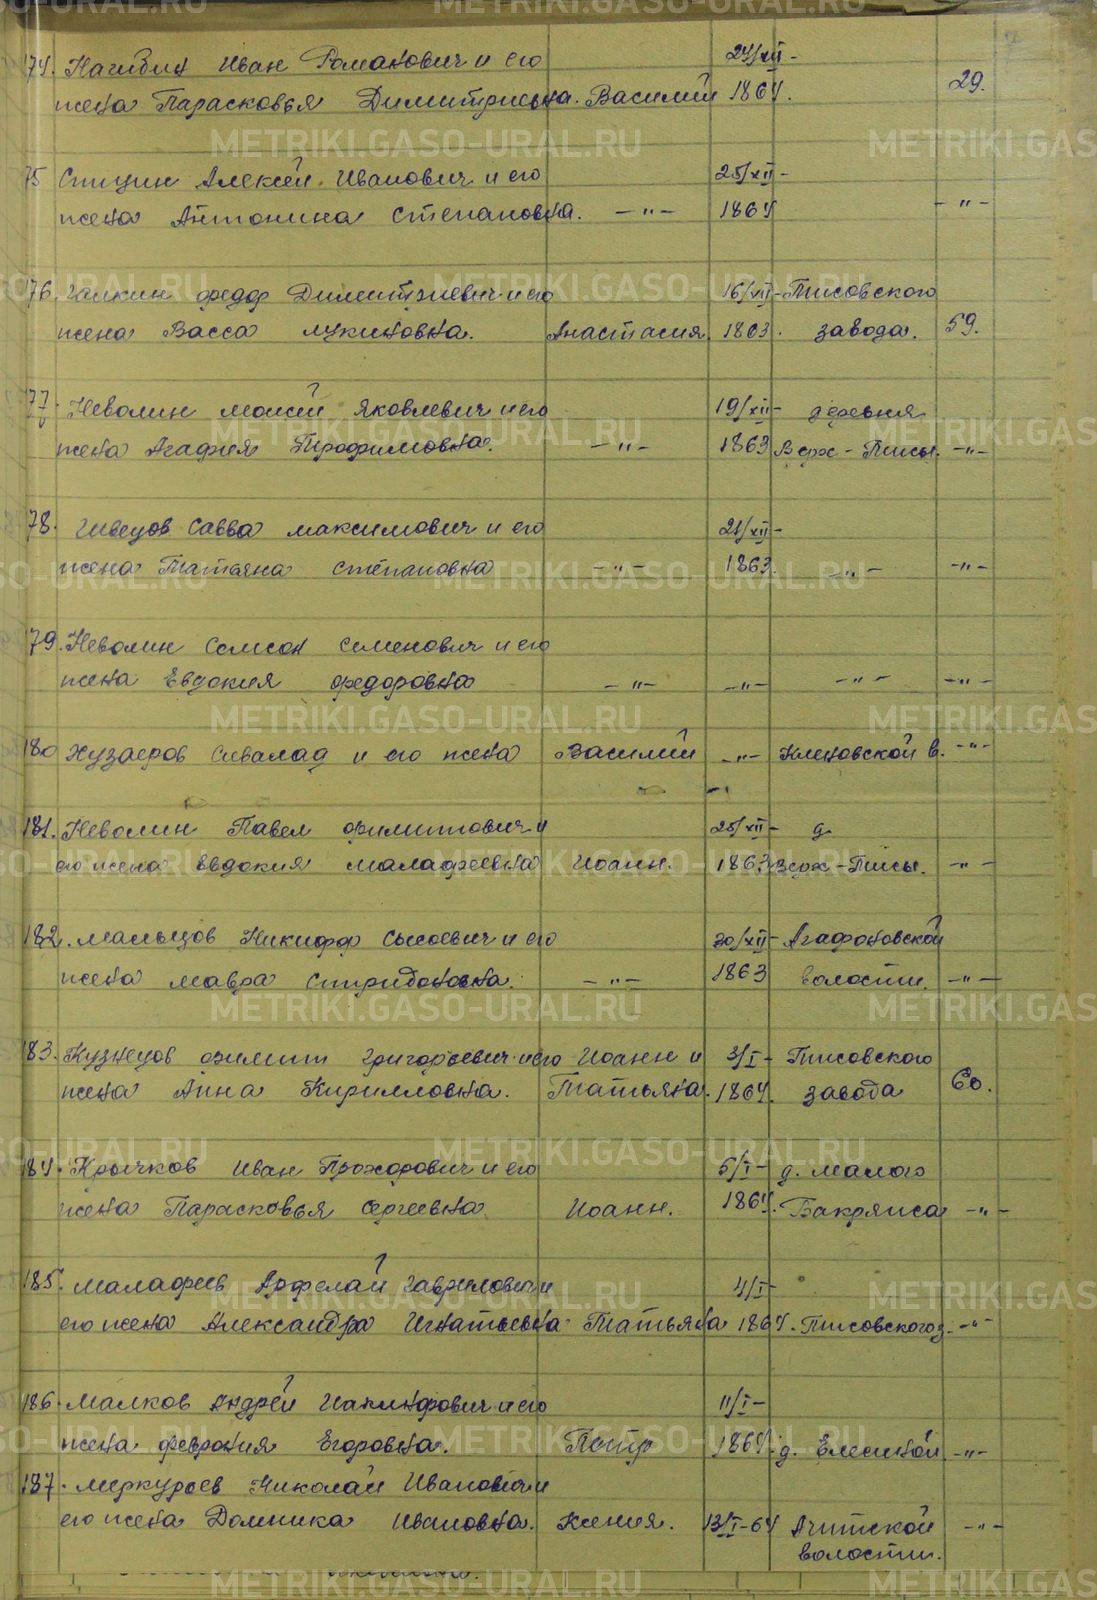 174. Нагибин Иван Романович и его 24/XII-
жена Парасковья Димитриевна. Василий 1864. 29.
175 Спицин Алексей Иванович и его 25/XII-
жена Антонина Степановна. -"- 1864 -"-
176. Галкин Федор Димитриевич и его 16/XII- Тисовского
жена Васса Лукиновна. Анастасия 1863. завода. 59.
177. Неволин Моисей Яковлевич и его 19/XII- деревня
жена Агафия Трофимовна. -"- 1863 Верх-Тисы. -"-
178. Швецов Савва Максимович и его 21/XII-
жена Татьяна Степановна -"- 1863. -"- -"-
179. Неволин Самсон Семенович и его
жена Евдокия Федоровна -"- -"- -"- -"-
180 Хузаеров Сивалад и его жена Василий -"- Кленовской в. -"-
181. Неволин Павел Филиппович и 25/XII- д.
его жена Евдокия Малафеевна Иоанн. 1863 Верх-Тисы. -"-
182. Мальцов Никифор Сысоевич и его 30/XII- Агафоновской
жена Мавра Спиридоновна. -"- 1863 волости. -"-
183. Кузнецов Филипп Григорьевич и его Иоанн и 3/I- Тисовского
жена Анна Кирилловна. Татьяна. 1864. завода 60.
184. Крючков Иван Прохорович и его 5/I- д. Малого
жена Парасковья Сергеевна Иоанн. 1864. Бакряиса -"-
185. Малафеев Гаврилович и 4/I-
его жена Александра Игнатьевна Татьяна 1864. Тисовского з. -"-
186. Малков Андрей Иакинфович и его 11/I-
жена Феврония Егоровна. Петр 1864 д. Еленской -"-
187. Меркурьев Николай Иванович и
его жена Домника Ивановна. Ксения. 13/I-64 Ачитской -"-
волости.
METRIKI.GASO-URAL.RU